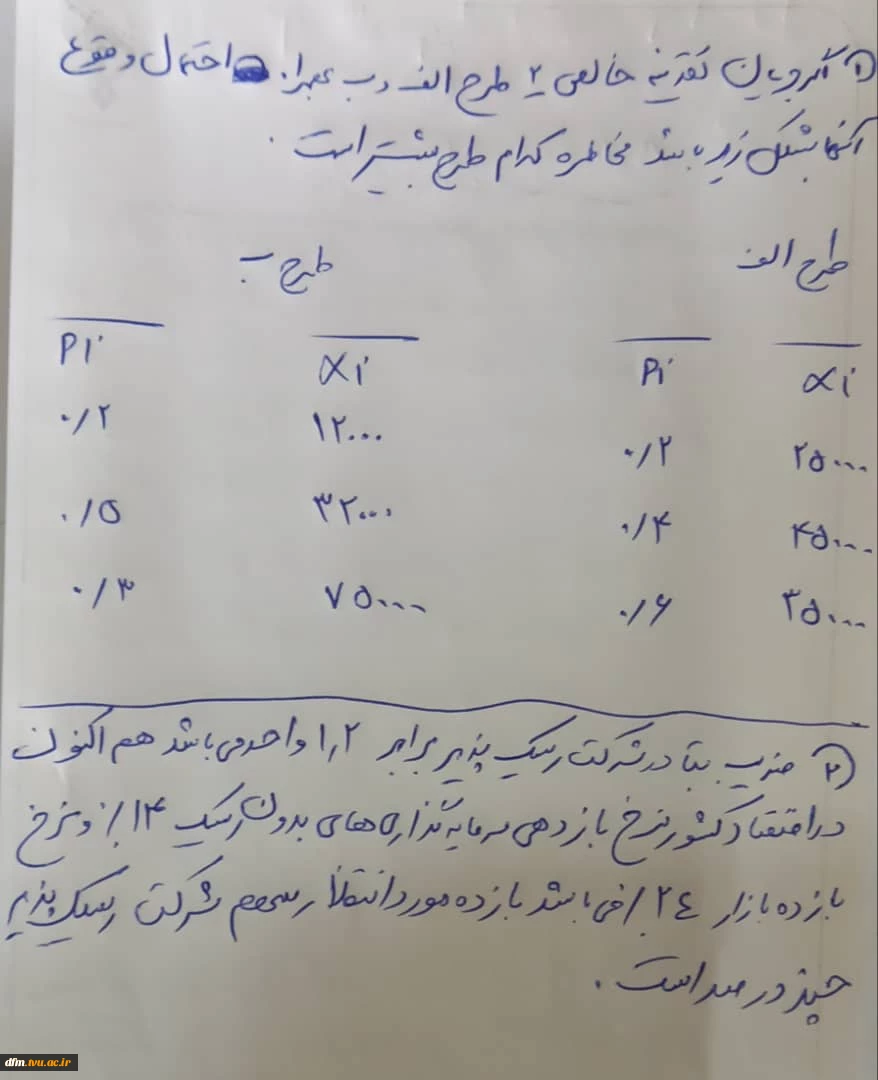 ① اگر جریان نقدینه خالص ۲ طرح الف و ب بهمراه احتمال وقوع
آنها بشکل زیر باشد مخاطره کدام طرح بیشتر است .
طرح الف طرح ب
xi Pi xi Pi
۲۵۰۰۰ ۰/۲ ۱۲۰۰۰ ۰/۲
۴۵۰۰۰ ۰/۴ ۳۲۰۰۰ ۰/۵
۳۵۰۰۰ ۰/۶ ۷۵۰۰۰ ۰/۳
② ضریب بتا در شرکت ریسک پذیر برابر ۱,۲ واحد می باشد هم اکنون
در اقتصاد کشور نرخ بازدهی سرمایه گذاری های بدون ریسک ۱۴٪ و نرخ
بازده بازار ۲٤٪ می باشد بازده مورد انتظار سهم شرکت ریسک پذیر
چند درصد است .
dfm.tvu.ac.ir